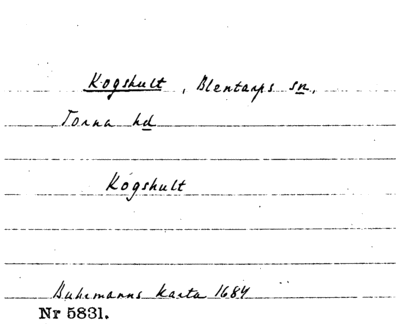 Kogshult, Blentarps sn,
Torna hd
Kogshult
Buhrmanns karta 1684
Nr 5831.